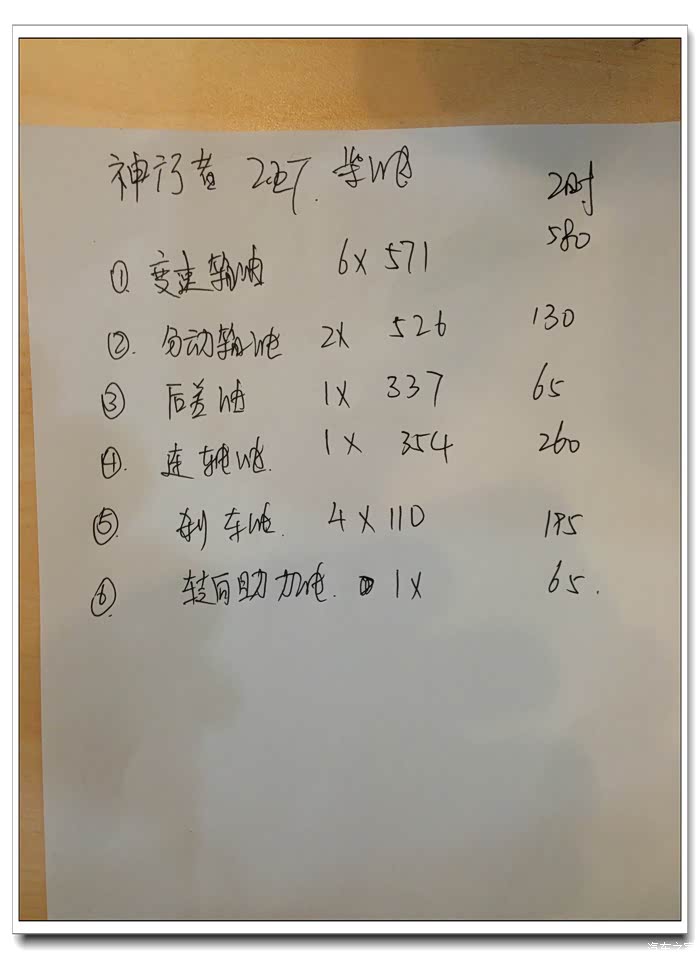 神行者 2代 柴油 工时
① 变速箱油 6X 571 580
②. 分动箱油 2X 526 130
③ 后差油 1X 337 65
④. 连轴油. 1X 354 260
⑤ 刹车油. 4X110 195
⑥ 转向助力油. 1X 65.
汽车之家